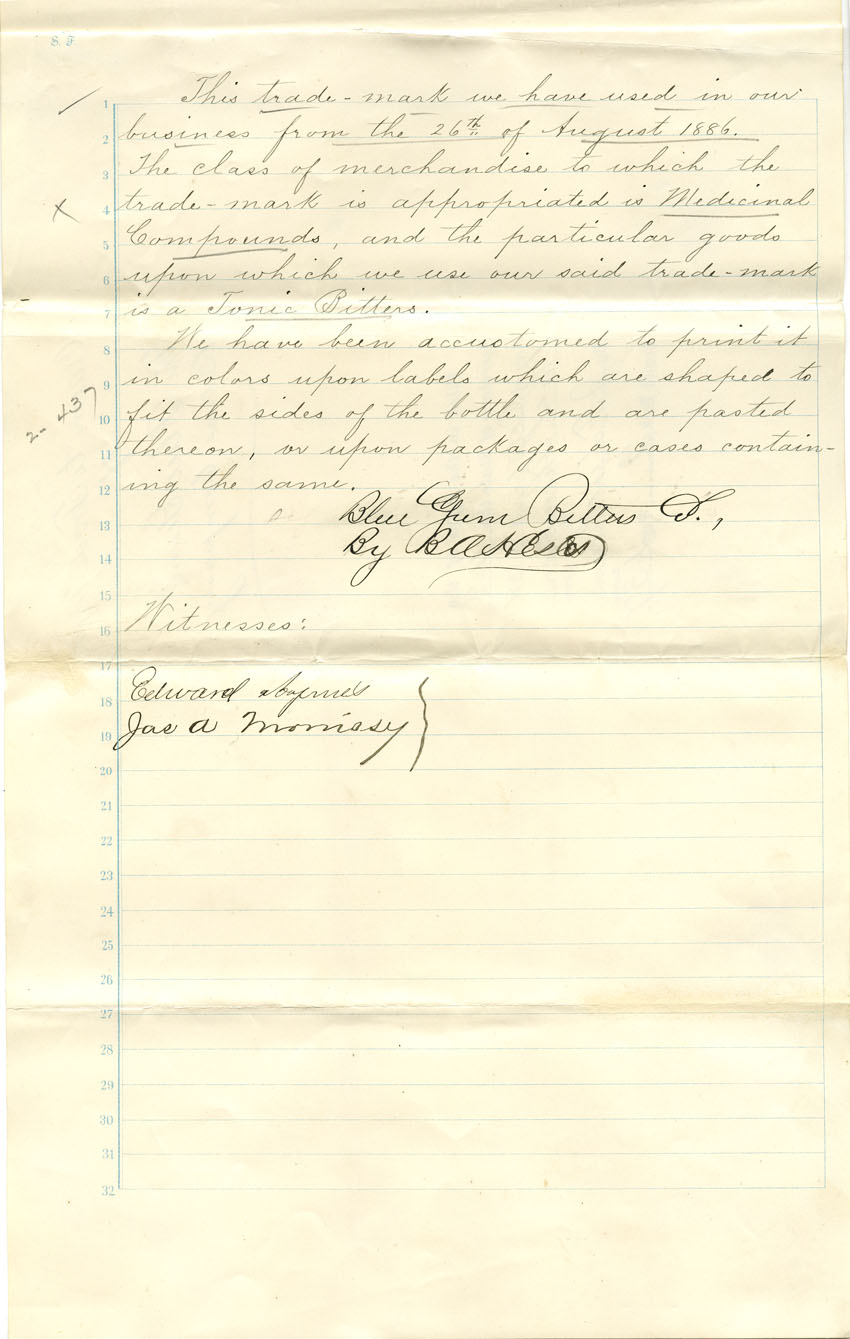 S. F.
1 This trade-mark we have used in our
2 business from the 26th of August 1886.
3 The class of merchandise to which the
4 trade-mark is appropriated is Medicinal
5 Compounds, and the particular goods
6 upon which we use our said trade-mark
7 is a Tonic Bitters.
8 We have been accustomed to print it
9 in colors upon labels which are shaped to
10 fit the sides of the bottle and are pasted
11 thereon, or upon packages or cases contain-
12 ing the same.
13 Blue Gum Bitters
14 By
15
16 Witnesses:
17
18 Edward
19 Jas a Morrissy
20
21
22
23
24
25
26
27
28
29
30
31
32
x
2-437